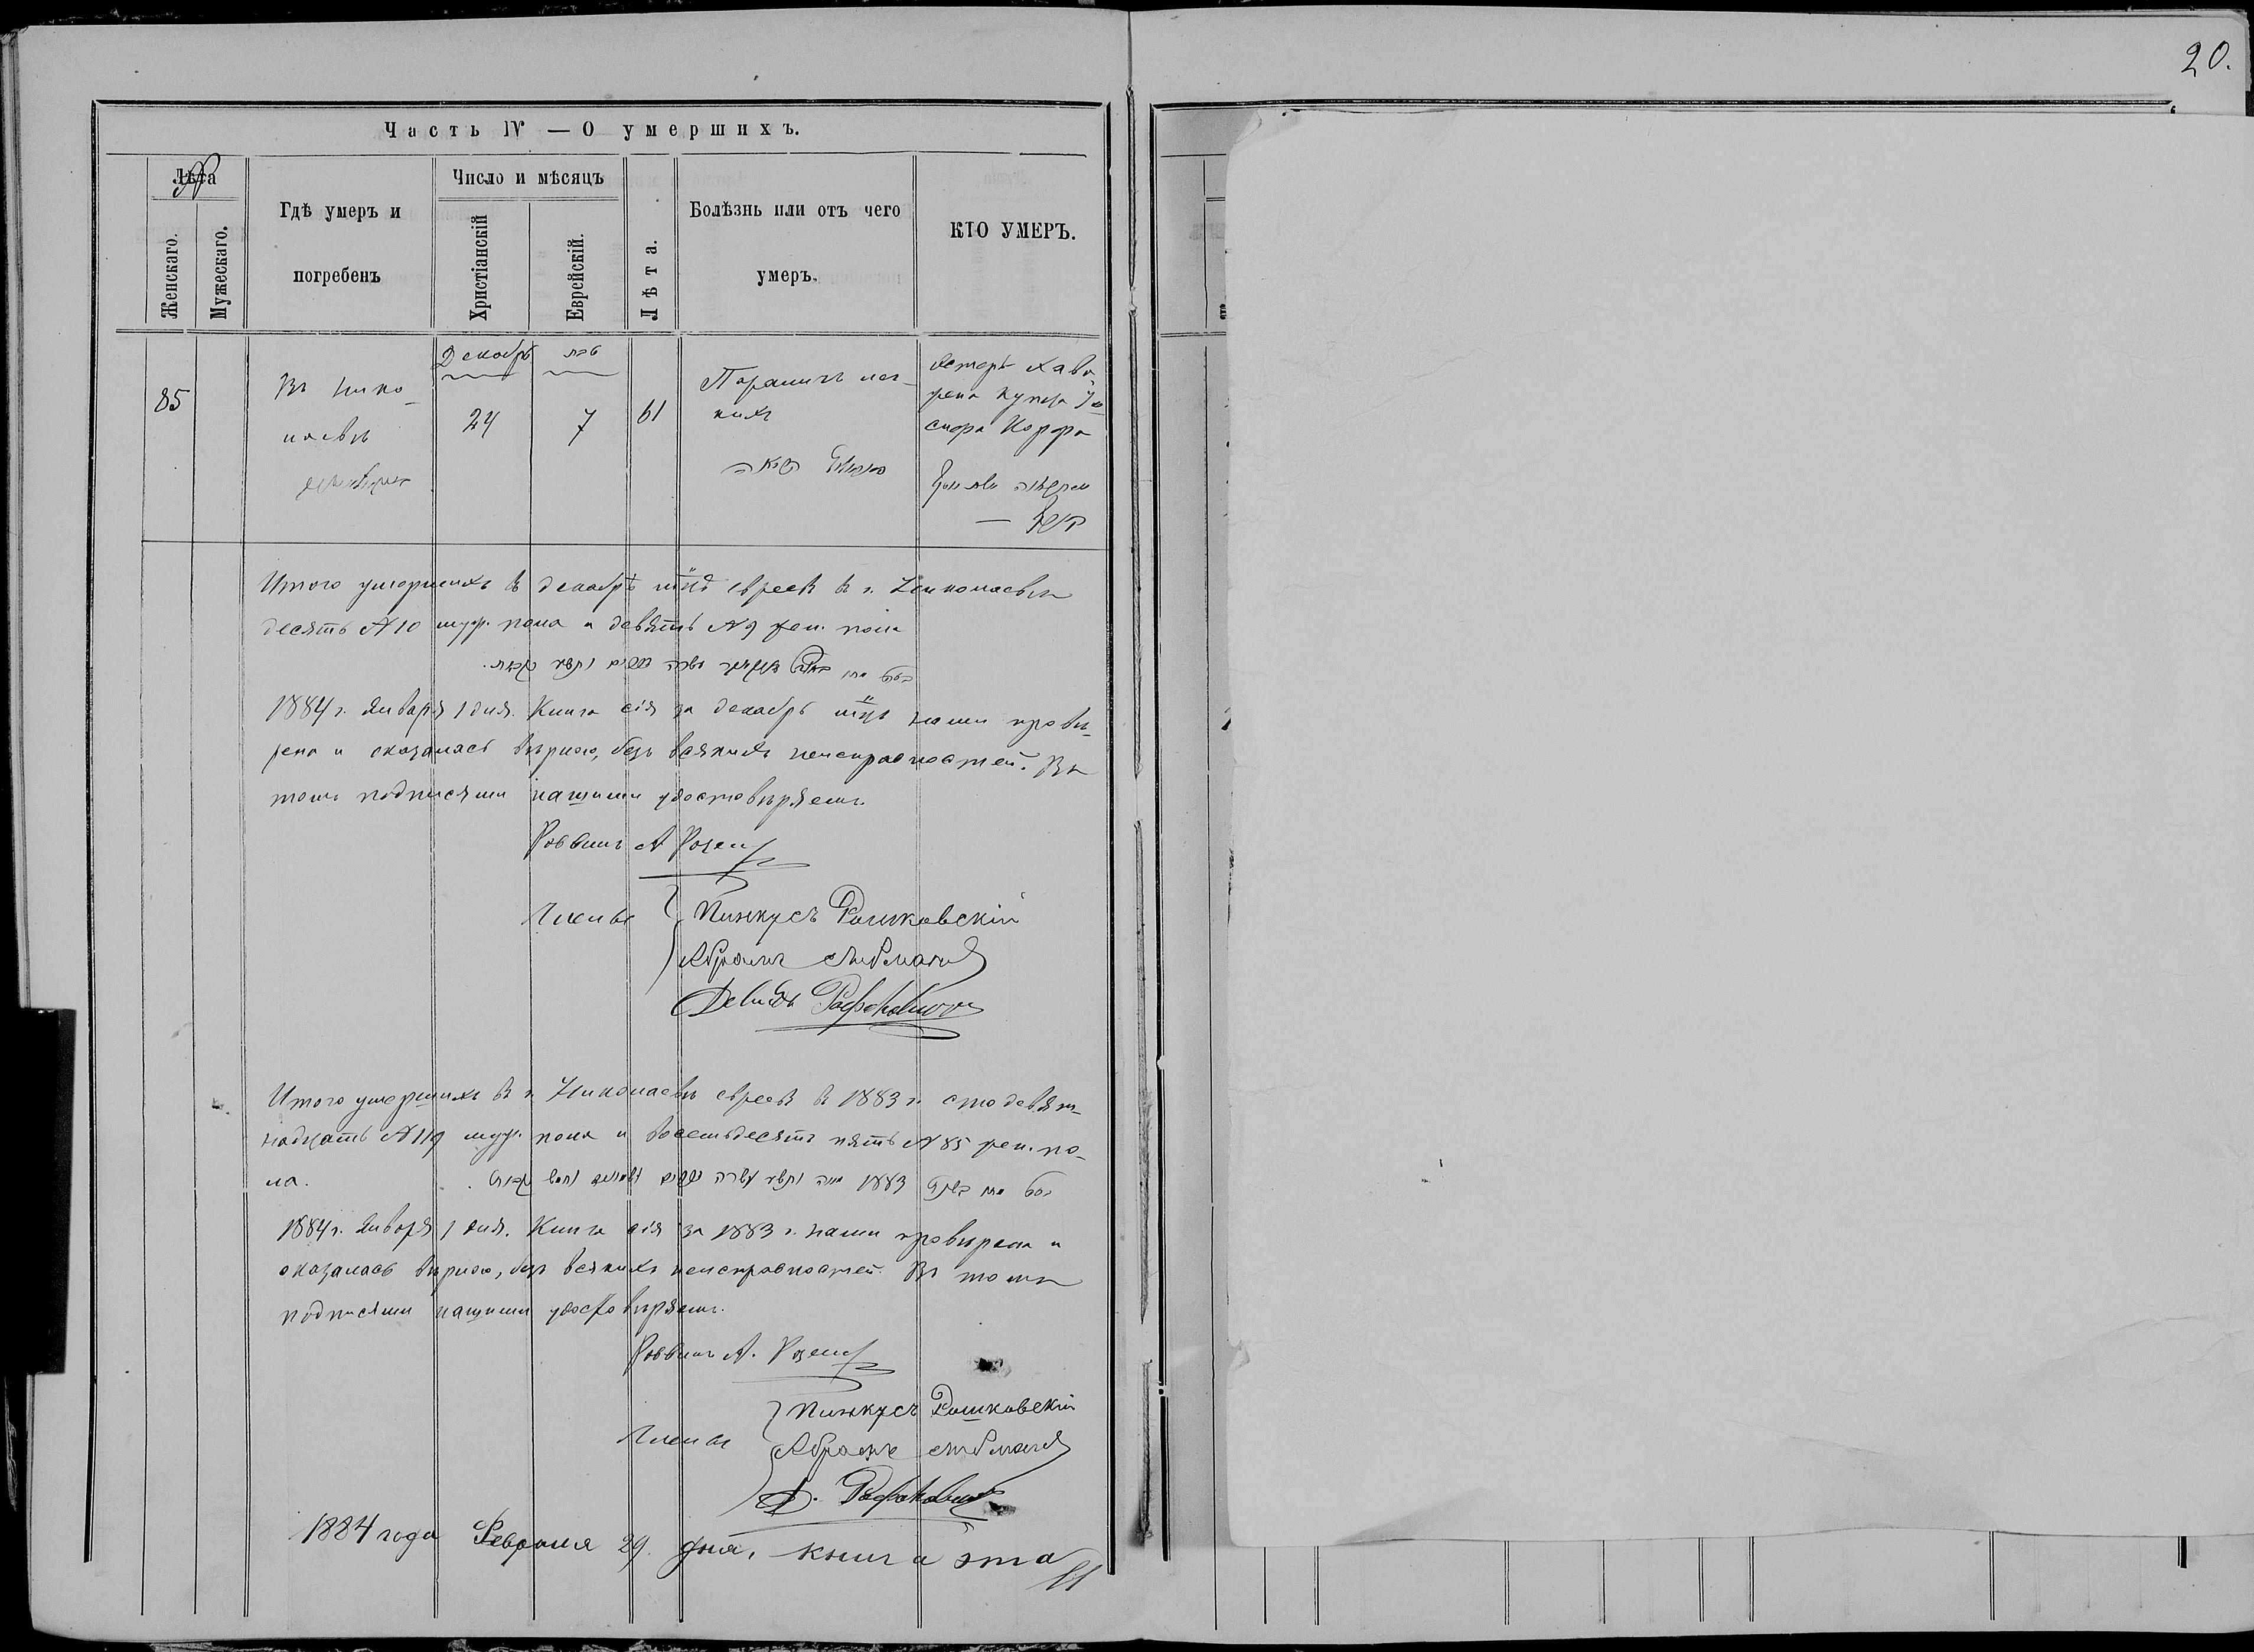 20.
Часть IV — О умершихъ.
Лѣта
№
Женскаго.
Мужескаго.
Гдѣ умеръ и
погребенъ
Число и мѣсяцъ
Христіанскій
Еврейскій.
Лѣта.
Болѣзнь или отъ чего
умеръ.
КТО УМЕРЪ.
85
Въ Нико-
лаевѣ
Декабрь
24
טבת
7
61
Параличъ лег-
кихъ
жена купца
Итого умершихъ въ декабрѣ м-цѣ евреевъ въ г. Николаевѣ
десять №10 муж. пола и девять №9 жен. пола
1884 г. Января 1 дня. Книга сія за декабрь м-цъ нами провѣ-
рена и оказалась вѣрною, безъ всякихъ неисправностей. Въ
томъ подписями нашими удостовѣряемъ.
Раввинъ А Розен
Члены
Пинкусъ Рашковскій
Абрамъ
Давидъ Рафаловичъ
Итого умершихъ въ г. Николаевѣ евреевъ въ 1883 г. сто девят-
надцать №119 муж. пола и восемьдесятъ пять №85 жен. по-
ла.
1883
1884 г. Января 1 дня. Книга сія за 1883 г. нами провѣрена и
оказалась вѣрною, безъ всякихъ неисправностей. Въ томъ
подписями нашими удостовѣряемъ.
Раввинъ А. Розен
Члены
Пинкусъ Рашковскій
Абрамъ
Д. Рафаловичъ
1884 года Февраля 29. дня, книга эта